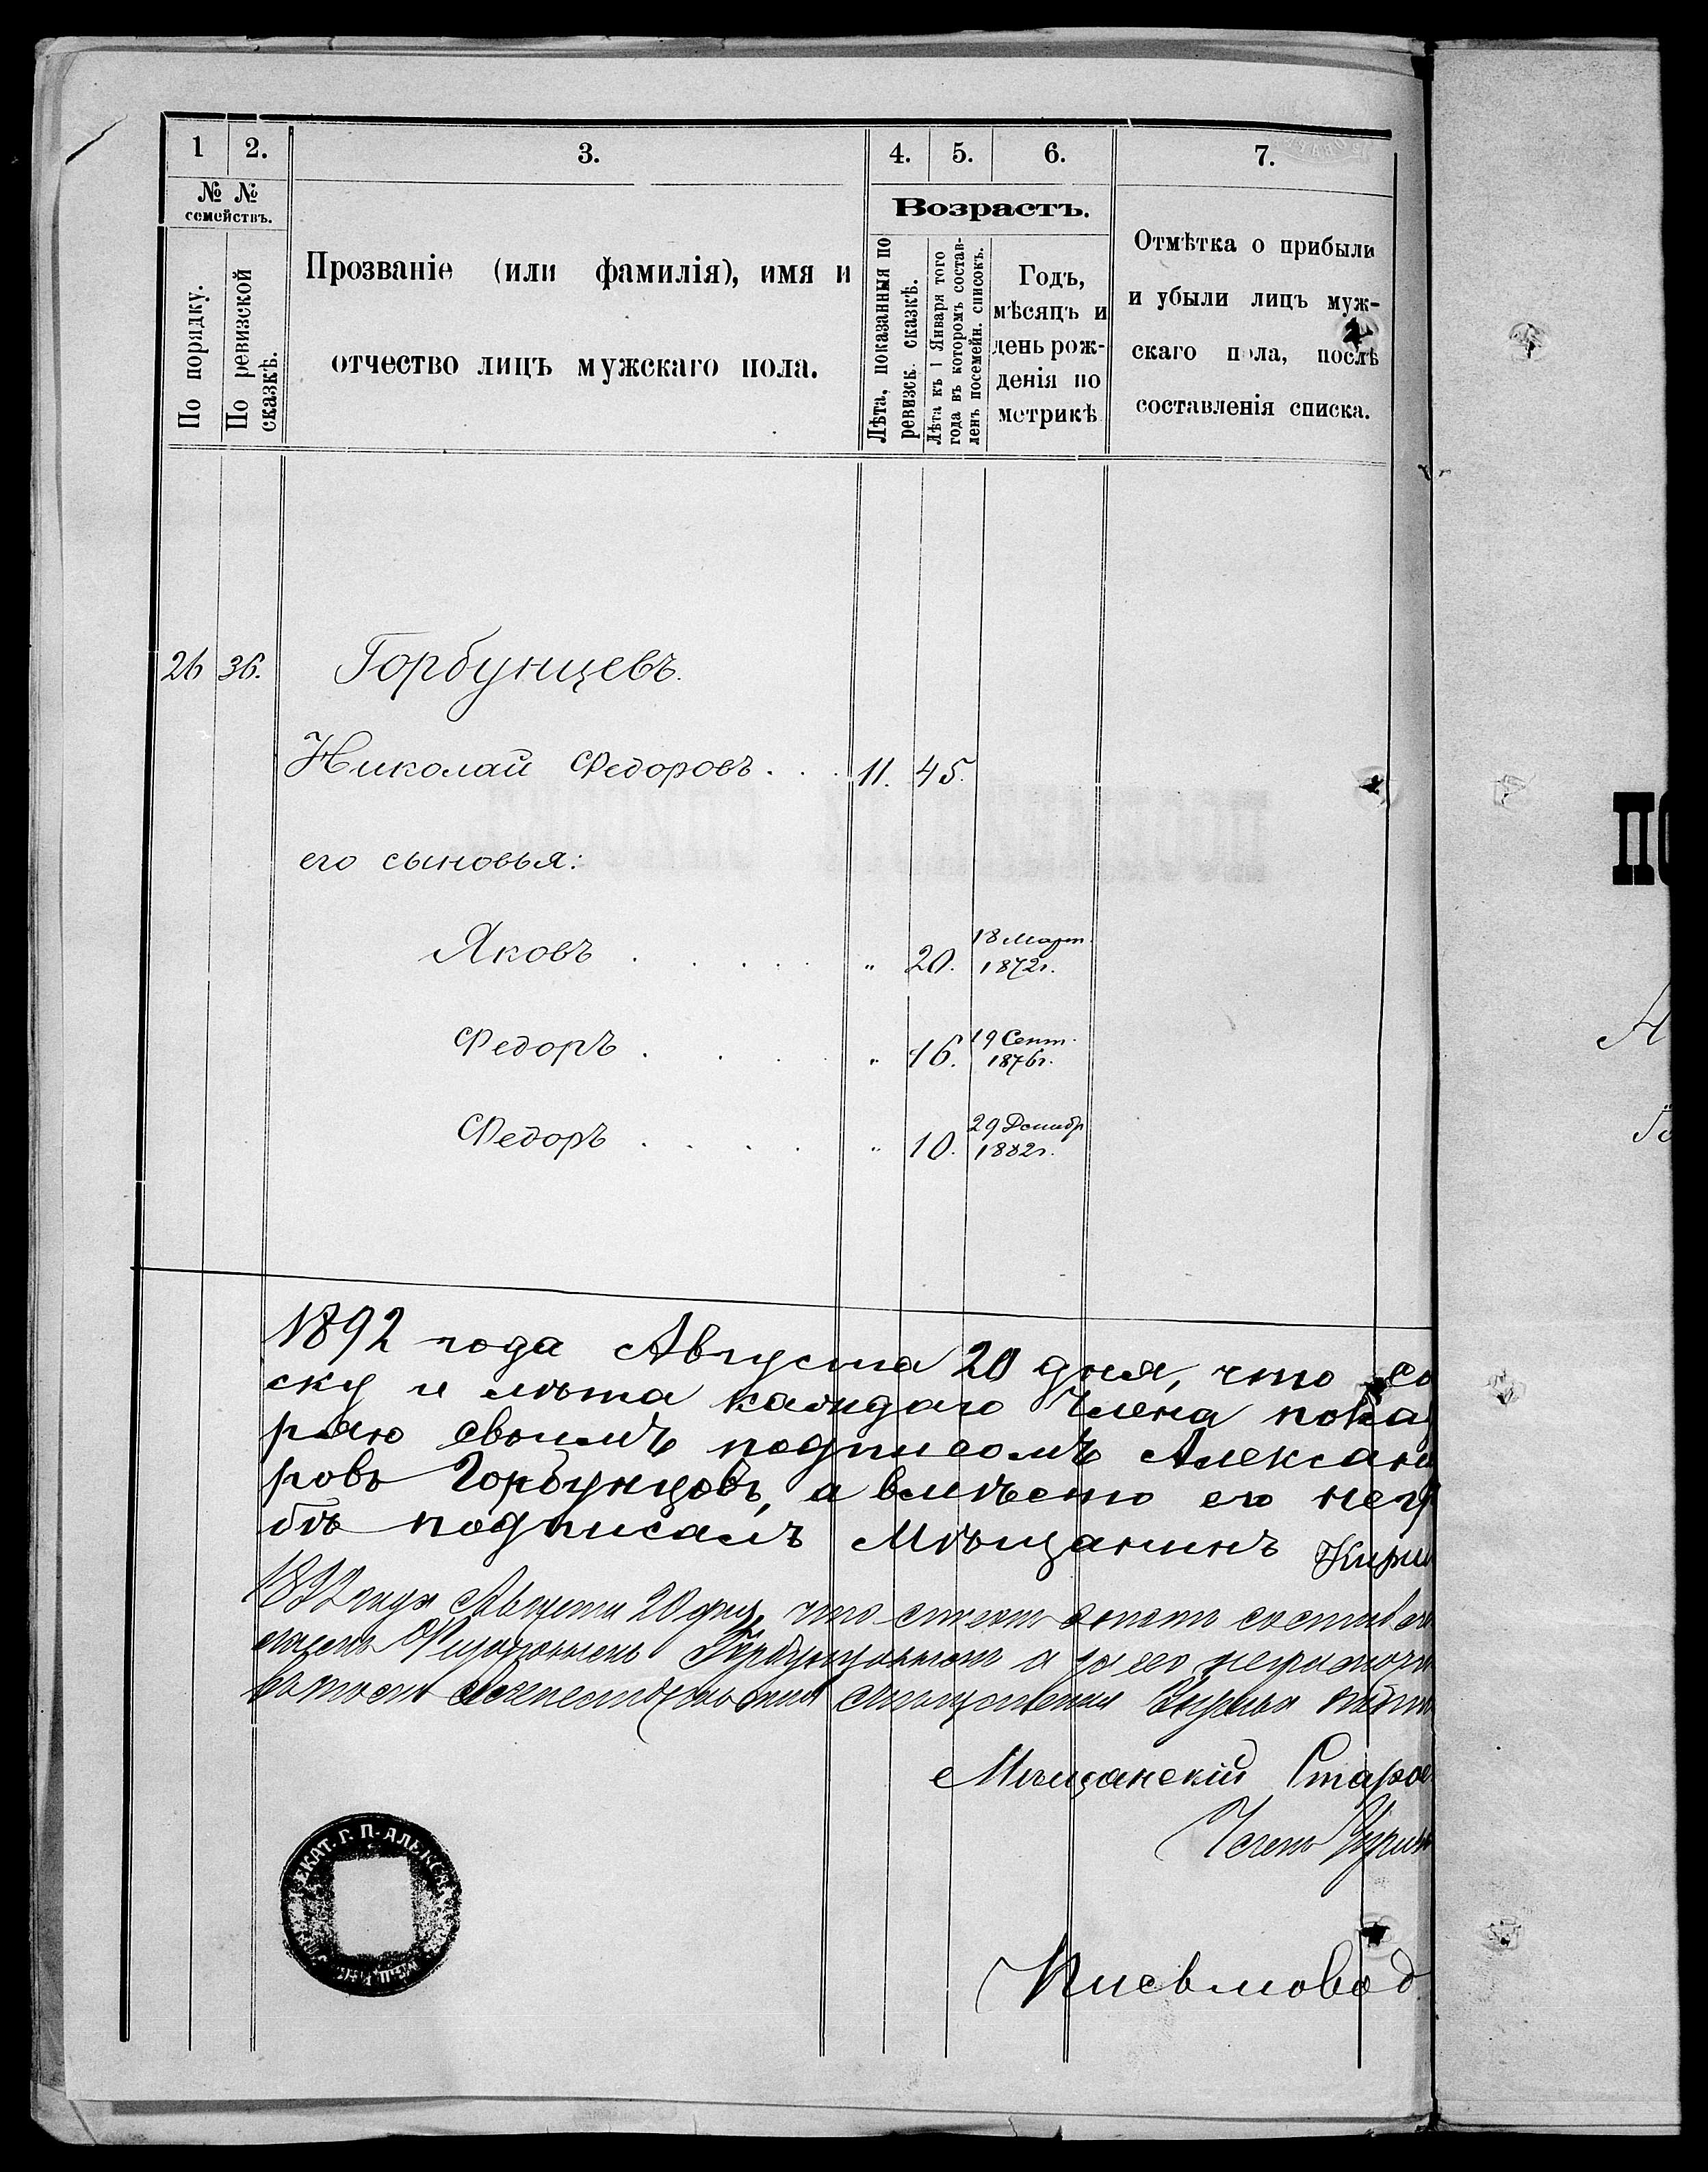 1 2. 3. 4. 5. 6. 7.
№ №
семействъ.
По порядку.
По ревизской
сказкѣ.
Прозваніе (или фамилія), имя и
отчество лицъ мужскаго пола.
Возрастъ.
Лѣта, показанныя по
ревизск. сказкѣ.
Лѣта къ 1 Января того
года въ которомъ состав-
ленъ посемейн. списокъ.
Годъ,
мѣсяцъ и
день рож-
денія по
метрикѣ
Отмѣтка о прибыли
и убыли лицъ муж-
скаго пола, послѣ
составленія списка.
26 36. Горбунцевъ.
Николай Федоровъ . . . 11. 45.
его сыновья:
Яковъ . . . . . „ 20. 18 Март. 1872г.
Федоръ . . . . „ 16. 19 Сент. 1876г.
Федоръ . . . . „ 10. 29 Декабр 1882г.
1892 года Августа 20 дня, что со
ску и лѣта каждаго Члена пока
ряю своимъ подписомъ Алексан
ровъ Горбунцовъ, а вмѣсто его негр
бѣ подписалъ Мѣщанинъ Кири
1892 года Августа 20 дня, что списокъ этотъ составле
Горбунцовымъ а за его неграмотн
Мѣщанскій Старос
Письмовод
ЕКАТ. Г. П. АЛЕКС
ПО